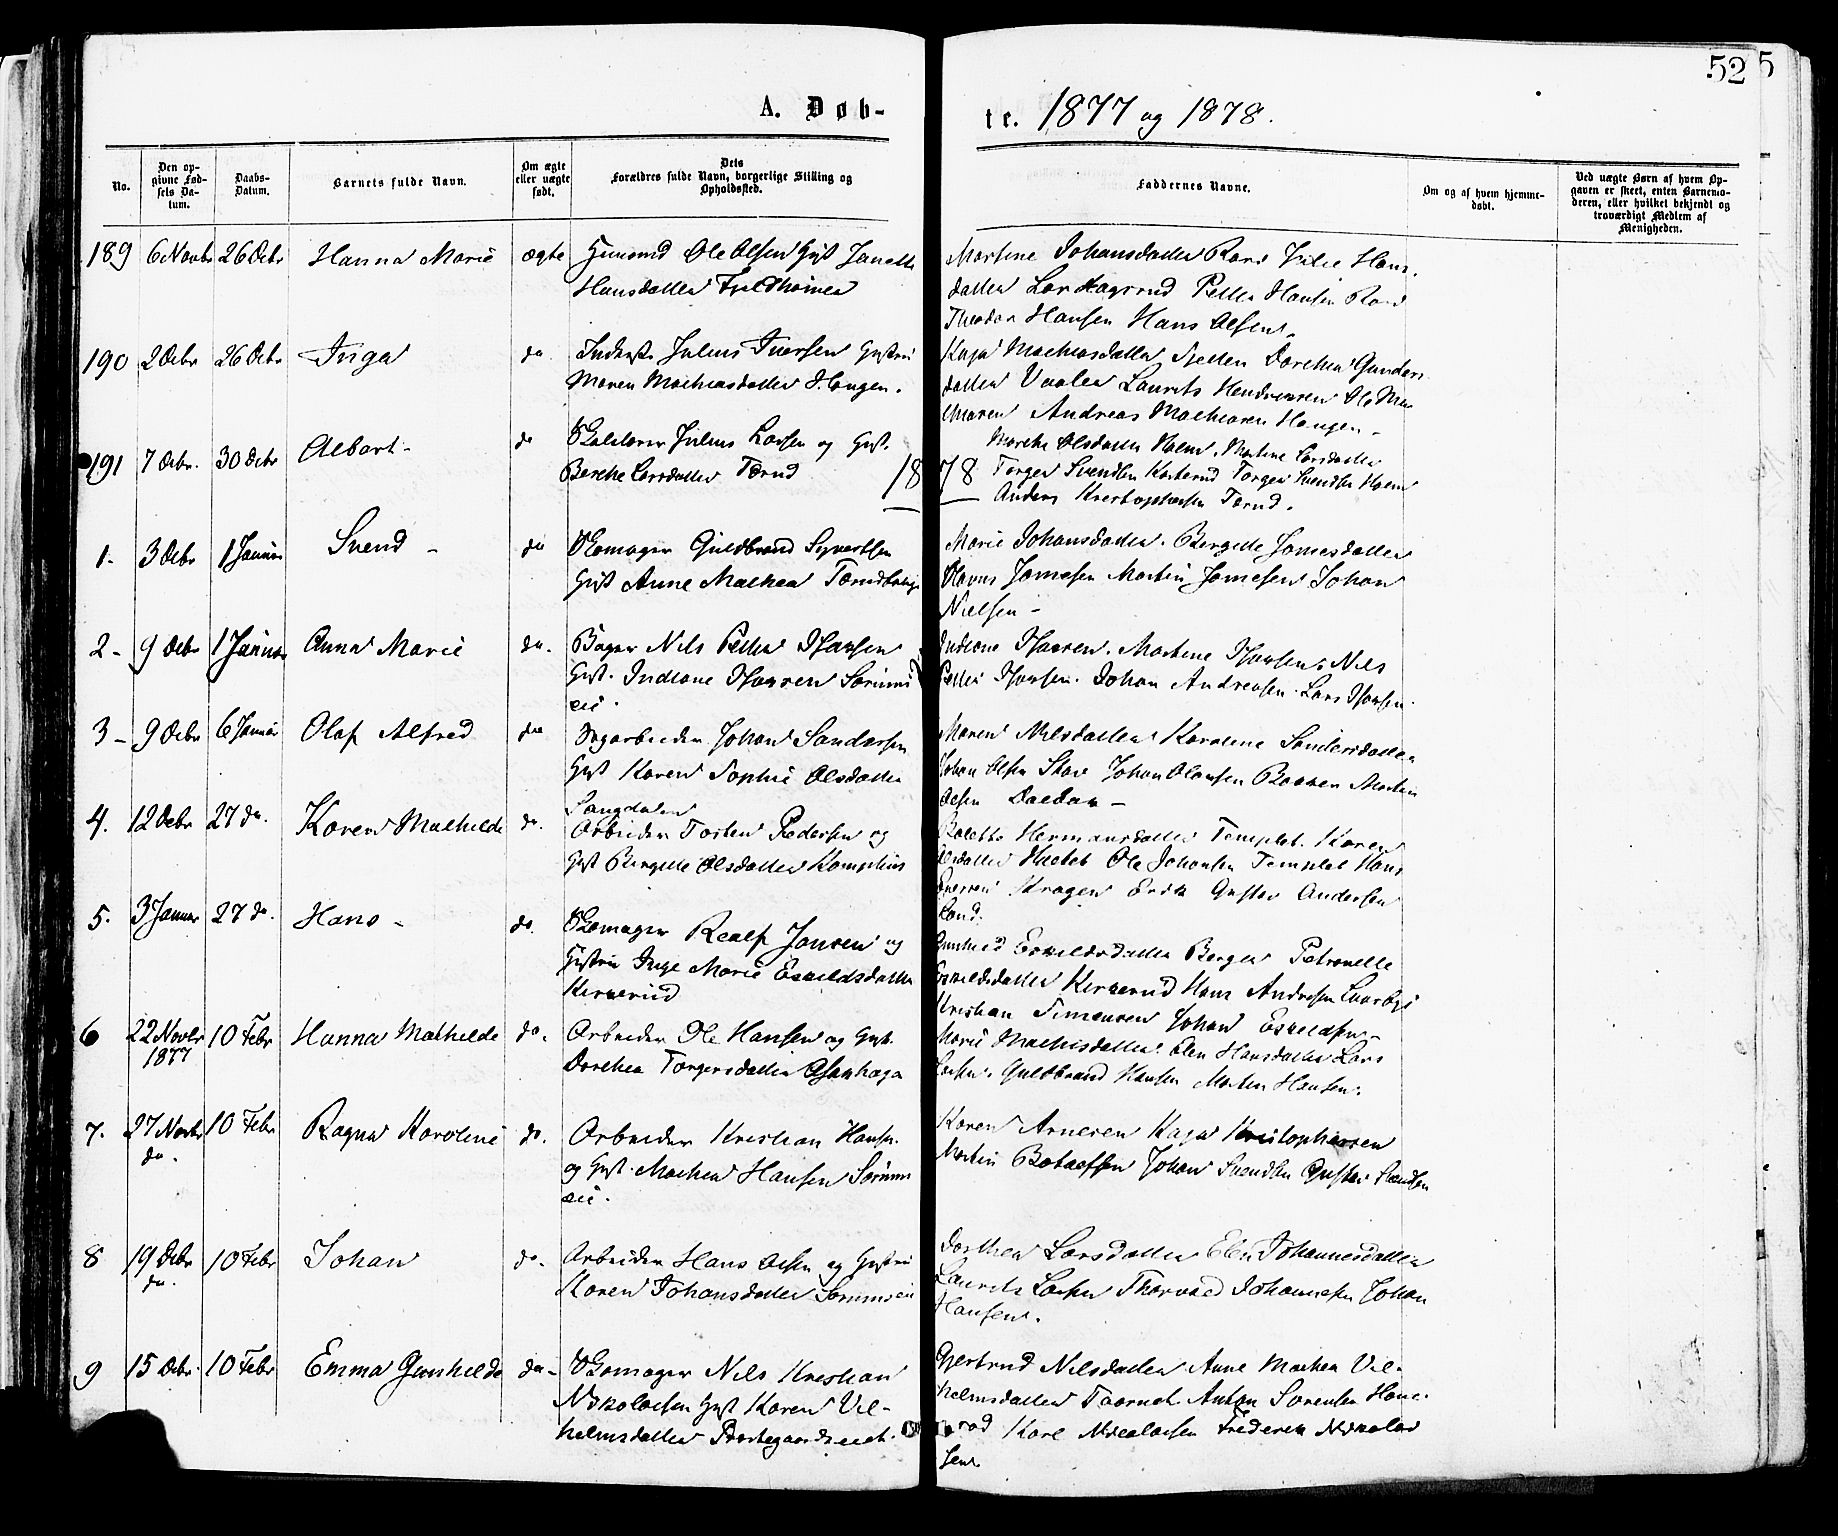 52
5
A. Døb-
te. 1877 og 1878.
No.
Den op-
givne Fød-
sels Da-
tum.
Daabs-
Datum.
Barnets fulde Navn.
Om ægte
eller uægte
født.
Dets
Forældres fulde Navn, borgerlige Stilling og
Opholdssted.
Faddernes Navne.
Om og af hvem hjemme-
døbt.
Ved uægte Børn af hvem Op-
gaven er skeet, enten Barnemo-
deren, eller hvilket bekjendt og
troværdigt Medlem af
Menigheden.
189 6 Novbr 26 Debr Hanna Marie ægte Ole Olsen Gift
Hansdatter
Martine Johansdatter Hans-
datter Petter Hansen
Theodor Hansen Hans Olsen.
190 2 Debr 26 Debr Inga do. Julius Iversen
Maren Mathiasdatter Haugen.
Kaja Mathiasdatter Dorthea Gunders
datter Laurits Hendriksen Ole Ma
thiasen Andreas Mathiasen Haugen -
191 7 Debr. 30 Debr Albert - do Julius Larsen og Gust.
Berthe Larsdatter Tærud
Marthe Olsdatter Holm, Martine Larsdatter
Torger Svendsen Torger Svendsen Holm
Anders Kristophersen Tærud.
1878
1. 3 Debr 1 Januar Svend - do Skomager Guldbrand Syvertsen
Gust Anne Mathea
Marie Johansdatter. Bergitte Jamesdatter
Olavus Jamesen Martin Jamesen Johan
Nielsen -
2 - 9 Debr 1 Januar Anna Marie do. Bager Nils Petter Hansen
Gust. Indiane Hansen Sørums
eie.
Indiane Hansen. Martine Hansen. Nils
Petter Hansen. Johan Andreasen. Lars Hansen.
3 - 9 Debr 6 Januar Olaf Alfred do Sagarbeider Johan Sandersen
Gust Karen Sophie Olsdatter
Sangdalen
Maren Nilsdatter Karoline Sandersdatter
Johan Olsen Johan Olausen Bakken Martin
Olsen
4. 12 Debr 27 do. Karen Mathilde do. Arbeider Torsten Pedersen og
Gust Bergitte Olsdatter
Bolette Hermansdatter Templet. Karen
Olsdatter Ole Johansen Templet Hans
Iversen Kragen Erik Gustav Andersen
5. 3 Januar 27 do. Hans - do. Skomager Realf Jansen og
Gustru Inge Marie Eskildsdatter
Kirkerud
Gunhild Eskildsdatter Berger Petronelle
Eskildsdatter Kirkerud Hans Andersen
Kristian Simensen Johan Eskildsen -
6 22 Novbr
1877 10 Febr Hanna Mathilde do. Arbeider Ole Hansen og Gust.
Dorthea Torgersdatter
Marie Mathisdatter. Elen Hansdatter Lars
Larsen. Guldbrand Hansen Martin Hansen.
7. 27 Novbr
do. 10 Febr Ragna Karoline do. Arbeider Kristian Hansen
og Gust. Mathea Hansen Sørums
eie.
Karen Arnesen Kaja Kristophersen
Martin Johan Svendsen Gustav Svendsen
8 19 Debr
do. 10 Febr Johan do. Arbeider Hans Olsen og Gustru
Karen Johansdatter Sørumseie
Dorthea Larsdatter Elen Johannesdatter
Laurits Larsen Thorvald Johannesen Johan
Hansen.
9 15 Debr. 10 Febr Emma Gunhilde do - Skomager Nils Kristian
Nikolaisen Gust Karen Vil-
helmsdatter Prestegaardseiet.
Gjertrud Nilsdatter Anne Mathea Vil-
helmsdatter Anton Sørensen
Karl Nikolaisen Frederik Nikolai
sen.